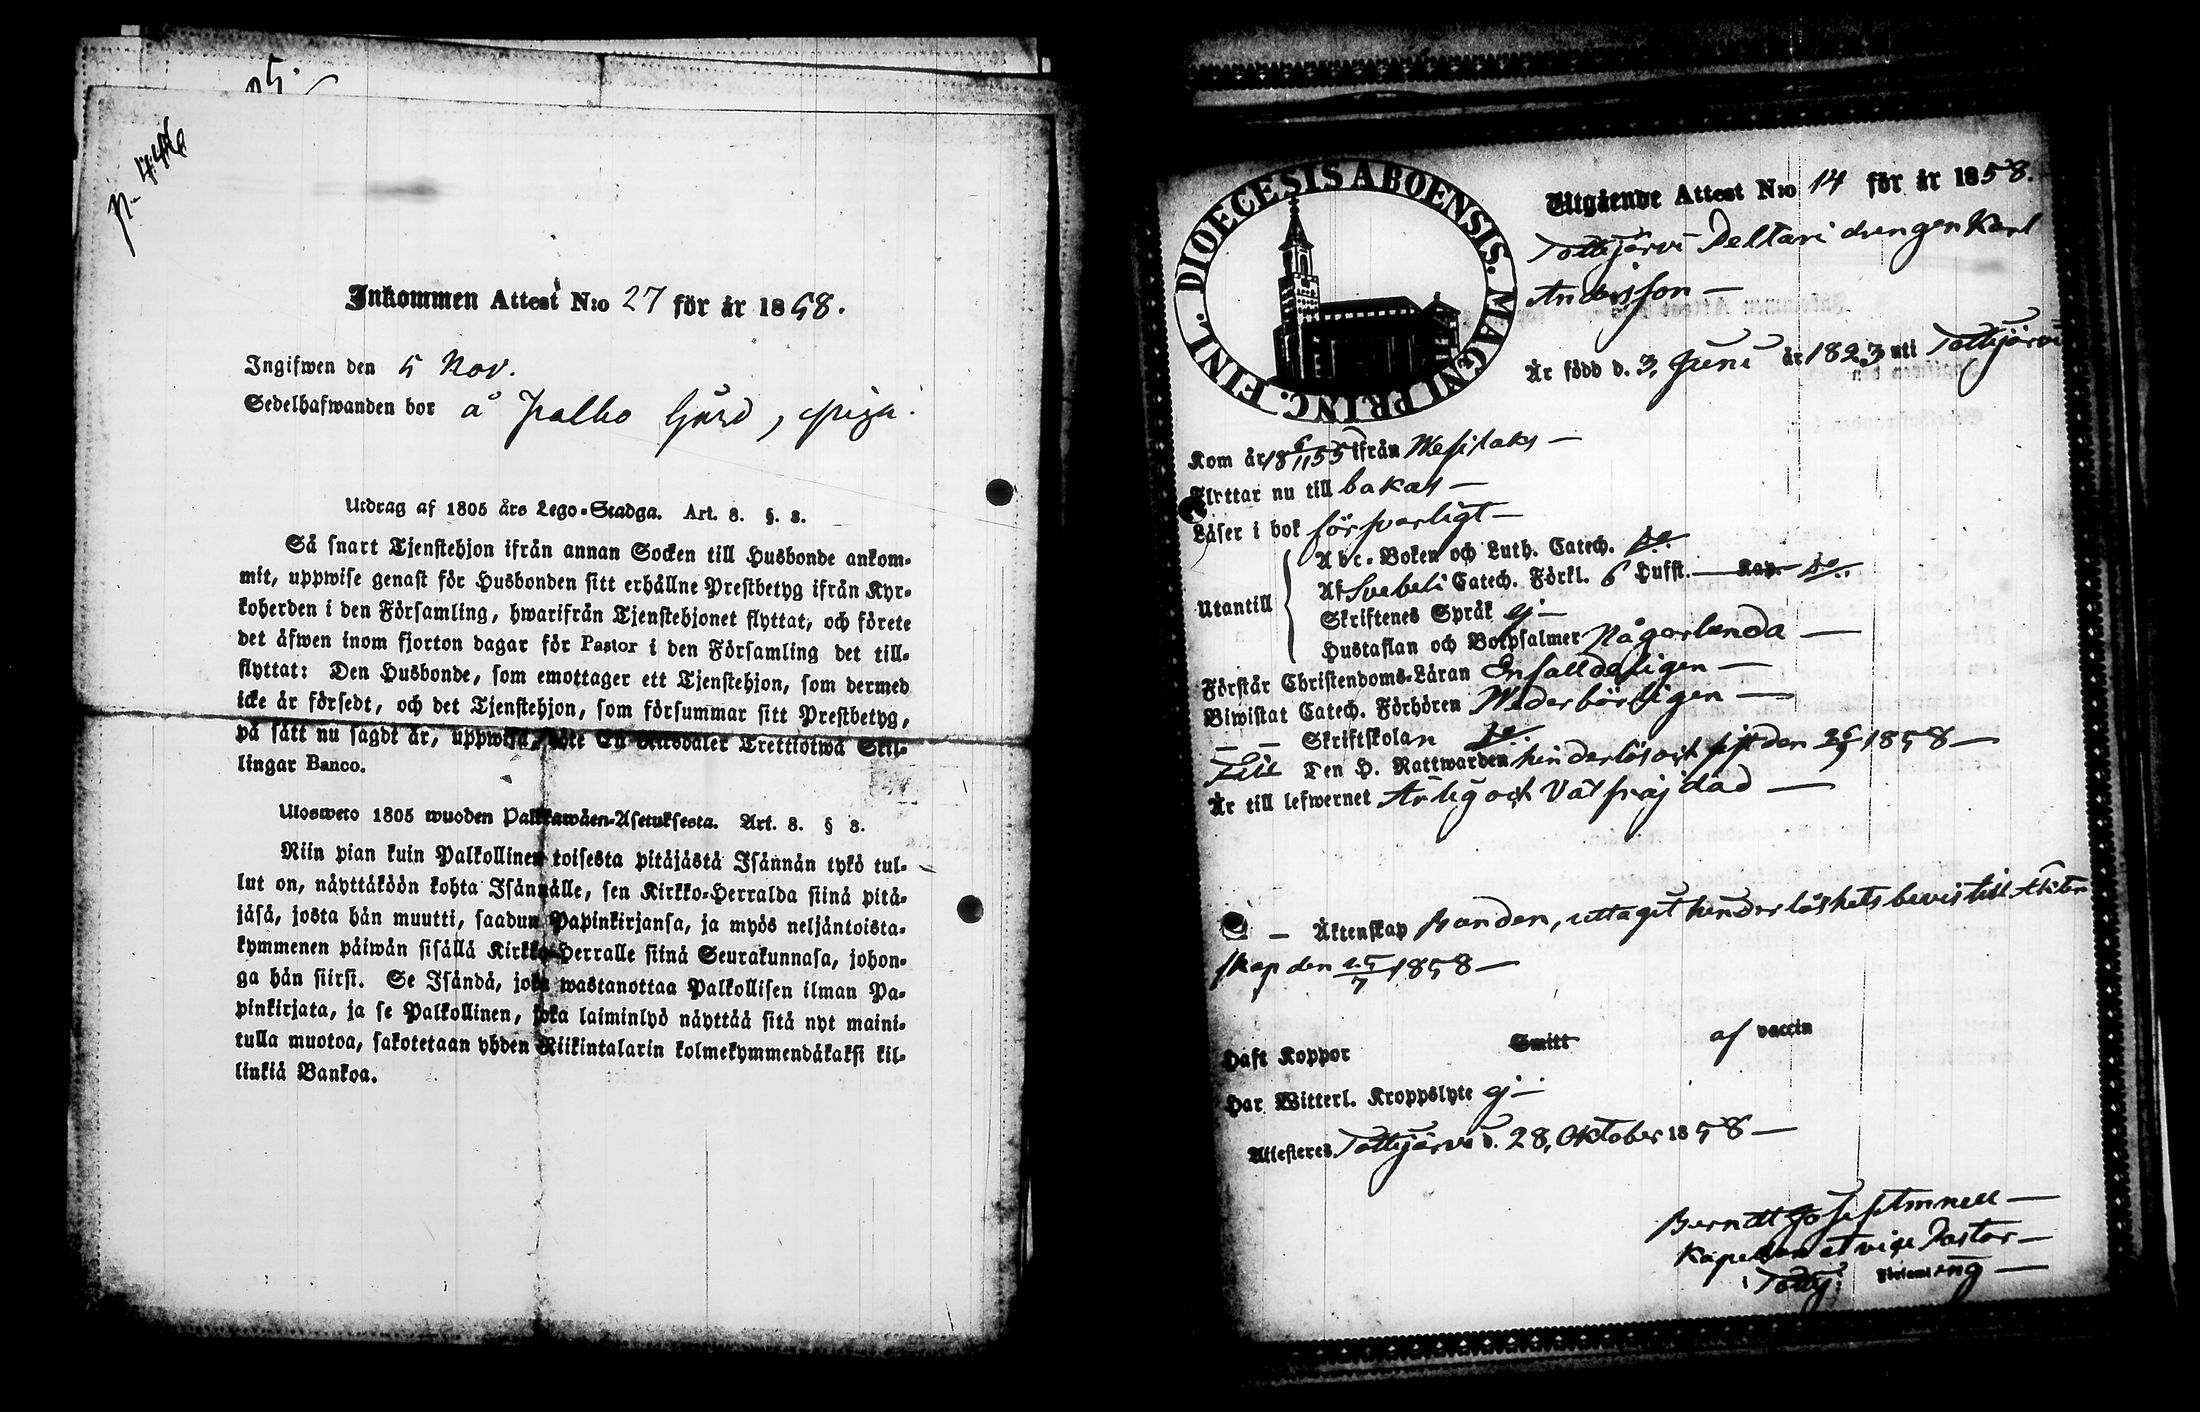 p. 446
Inkommen Attest N:o 27 för år 1858.
Ingifwen den 5 Nov.
Sedelhafwanden bor å Palho Gård, piga.
Utdrag af 1805 års Lego-Stadga. Art. 8. §. 8.
Så snart Tjenstehjon ifrån annan Socken till Husbonde ankom-
mit, uppwise genast för Husbonden sitt erhållne Prestbetyg ifrån Kyr-
koherden i den Församling, hwarifrån Tjenstehjonet flyttat, och förete
det äfwen inom fjorton dagar för Pastor i den Församling det till-
flyttat: Den Husbonde, som emottager ett Tjenstehjon, som dermed
icke är försedt, och det Tjenstehjon, som försummar sitt Prestbetyg,
på sätt nu sagdt är, uppwisa, böte En Riksdaler Trettiotwå Skil-
lingar Banco.
Ulosweto 1805 wuoden Palkkawäen-Asetuksesta. Art. 8. § 8.
Niin pian kuin Palkollinen toisesta pitäjästä Isännän tykö tul-
lut on, näyttäköön kohta Isännälle, sen Kirkko-Herralda siinä pitä-
jäsä, josta hän muutti, saadun Papinkirjansa, ja myös neljäntoista-
kymmenen päiwän sisällä Kirkko-Herralle siinä Seurakunnasa, johon-
ga hän siirsi. Se Isändä, joka wastanottaa Palkollisen ilman Pa-
pinkirjata, ja se Palkollinen, joka laiminlyö näyttää sitä nyt maini-
tulla muotoa, sakotetaan yhden Riikintalarin kolmekymmendäkaksi kil-
linkiä Bankoa.
DIOECESIS ABOENSIS. MAGNI PRINC. FINL.
Utgående Attest N:o 14 för år 1858.
Tottijärvi Deltari drengen Karl
Andersson —
Är född d. 3, Juni år 1823 uti Tottijärvi
Kom år 18 6/11 55 ifrån Wesilaks —
Flyttar nu till bakas —
Läser i bok försvarligt —
Utantill
Abc-Boken och Luth. Catech. do.
Af Svebeli Catech. Förkl. 6 Hufst. — Kap. do.
Skriftenes Språk ej —
Hustaflan och Botpsalmer Någorlunda —
Förstår Christendoms-Läran Enfalldeligen —
Biwistat Catech. Förhören Wederbörligen —
Skriftskolan do.
Till Den H. Nattwarden hinderlös och sist den 26/9 1858 —
Är till lefwernet Ärlig och Välfräjdad —
— Äktenskap Bonden, uttaget hinderlöshets bevis till Äkten
skap den 25/7 1858 —
Haft Koppor Smitt af vaccin
Har Witterl. Kroppslyte ej —
Attesteres Tottijärvi d. 28, Oktober 1858 —
Berndt Josef Amnell —
Kapellan et vice Pastor —
i Tottij: Församling —